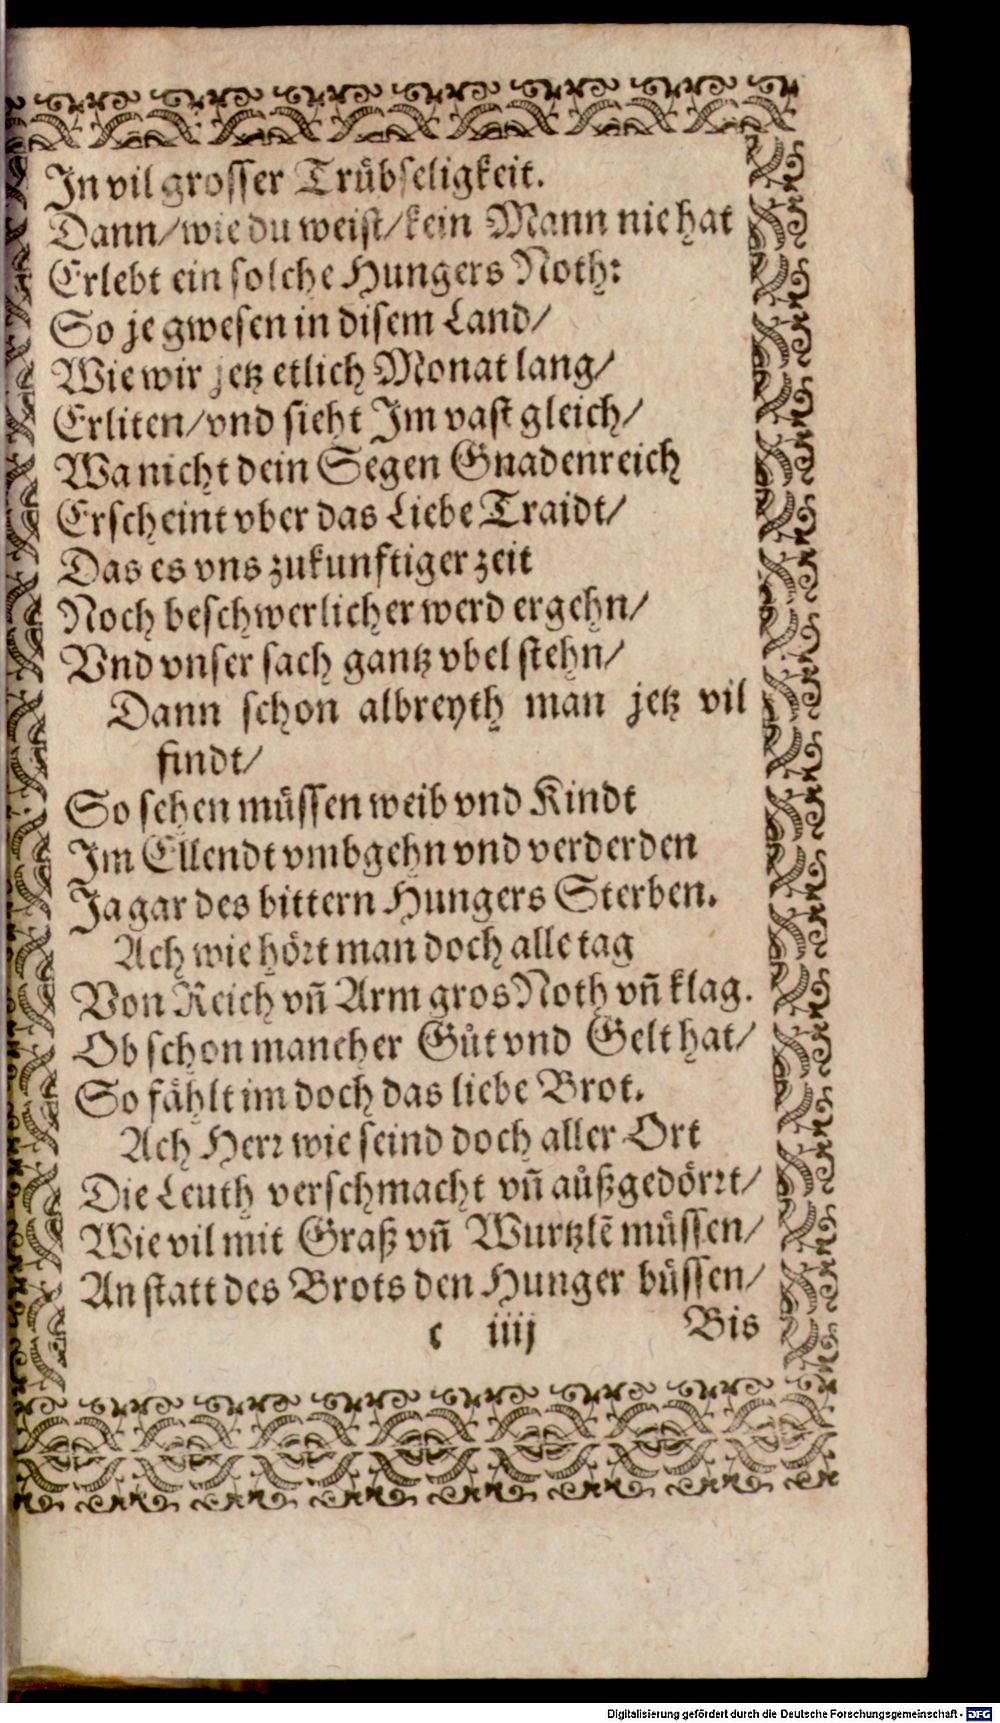 In vil grosser Trübseligkeit.
Dann/wie du weist/kein Mann nie hat
Erlebt ein solche Hungers Noth:
So je gwesen in disem Land/
Wie wir jetz etlich Monat lang/
Erliten/vnd sieht Im vast gleich/
Wa nicht dein Segen Gnadenreich
Erscheint vber das Liebe Traidt/
Das es vns zukunftiger zeit
Noch beschwerlicher werd ergehn/
Vnd vnser sach gantz vbel stehn/
Dann schon albreyth man jetz vil
findt/
So sehen müssen weib vnd Kindt
Im Ellendt vmbgehn vnd verderden
Ja gar des bittern Hungers Sterben.
Ach wie hört man doch alle tag
Von Reich vñ Arm gros Noth vñ klag.
Ob schon mancher Gůt vnd Gelt hat/
So fählt im doch das liebe Brot.
Ach Herr wie seind doch aller Ort
Die Leuth verschmacht vñ aůßgedörrt/
Wie vil mit Graß vñ Wurtzlẽ müssen/
An statt des Brots den Hunger büssen/
c iiij Bis
Digitalisierung gefördert durch die Deutsche Forschungsgemeinschaft - DFG